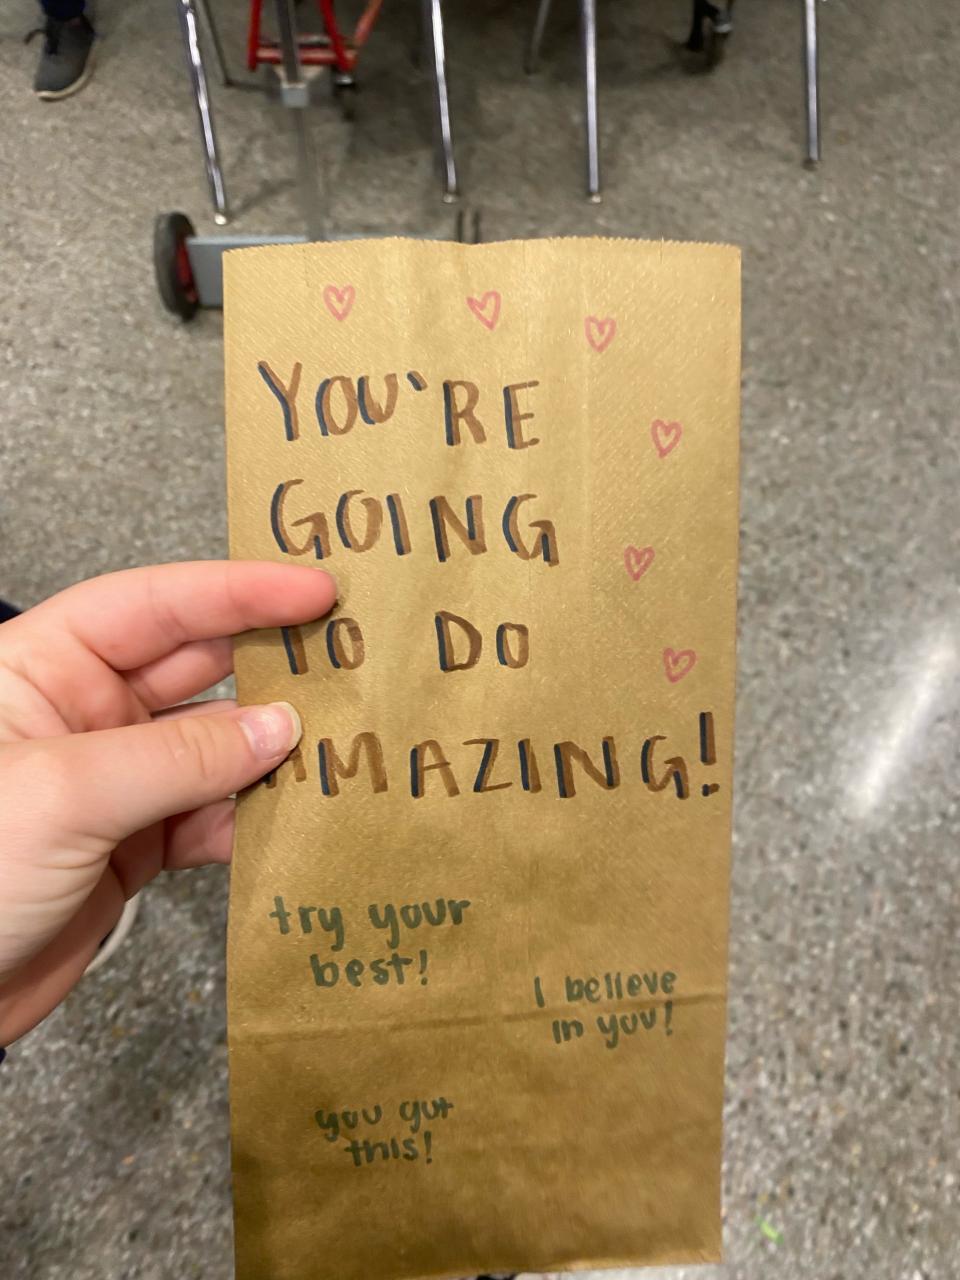 YOU'RE
GOING
TO DO
AMAZING!
try your
best!
I believe
in you!
you got
this!